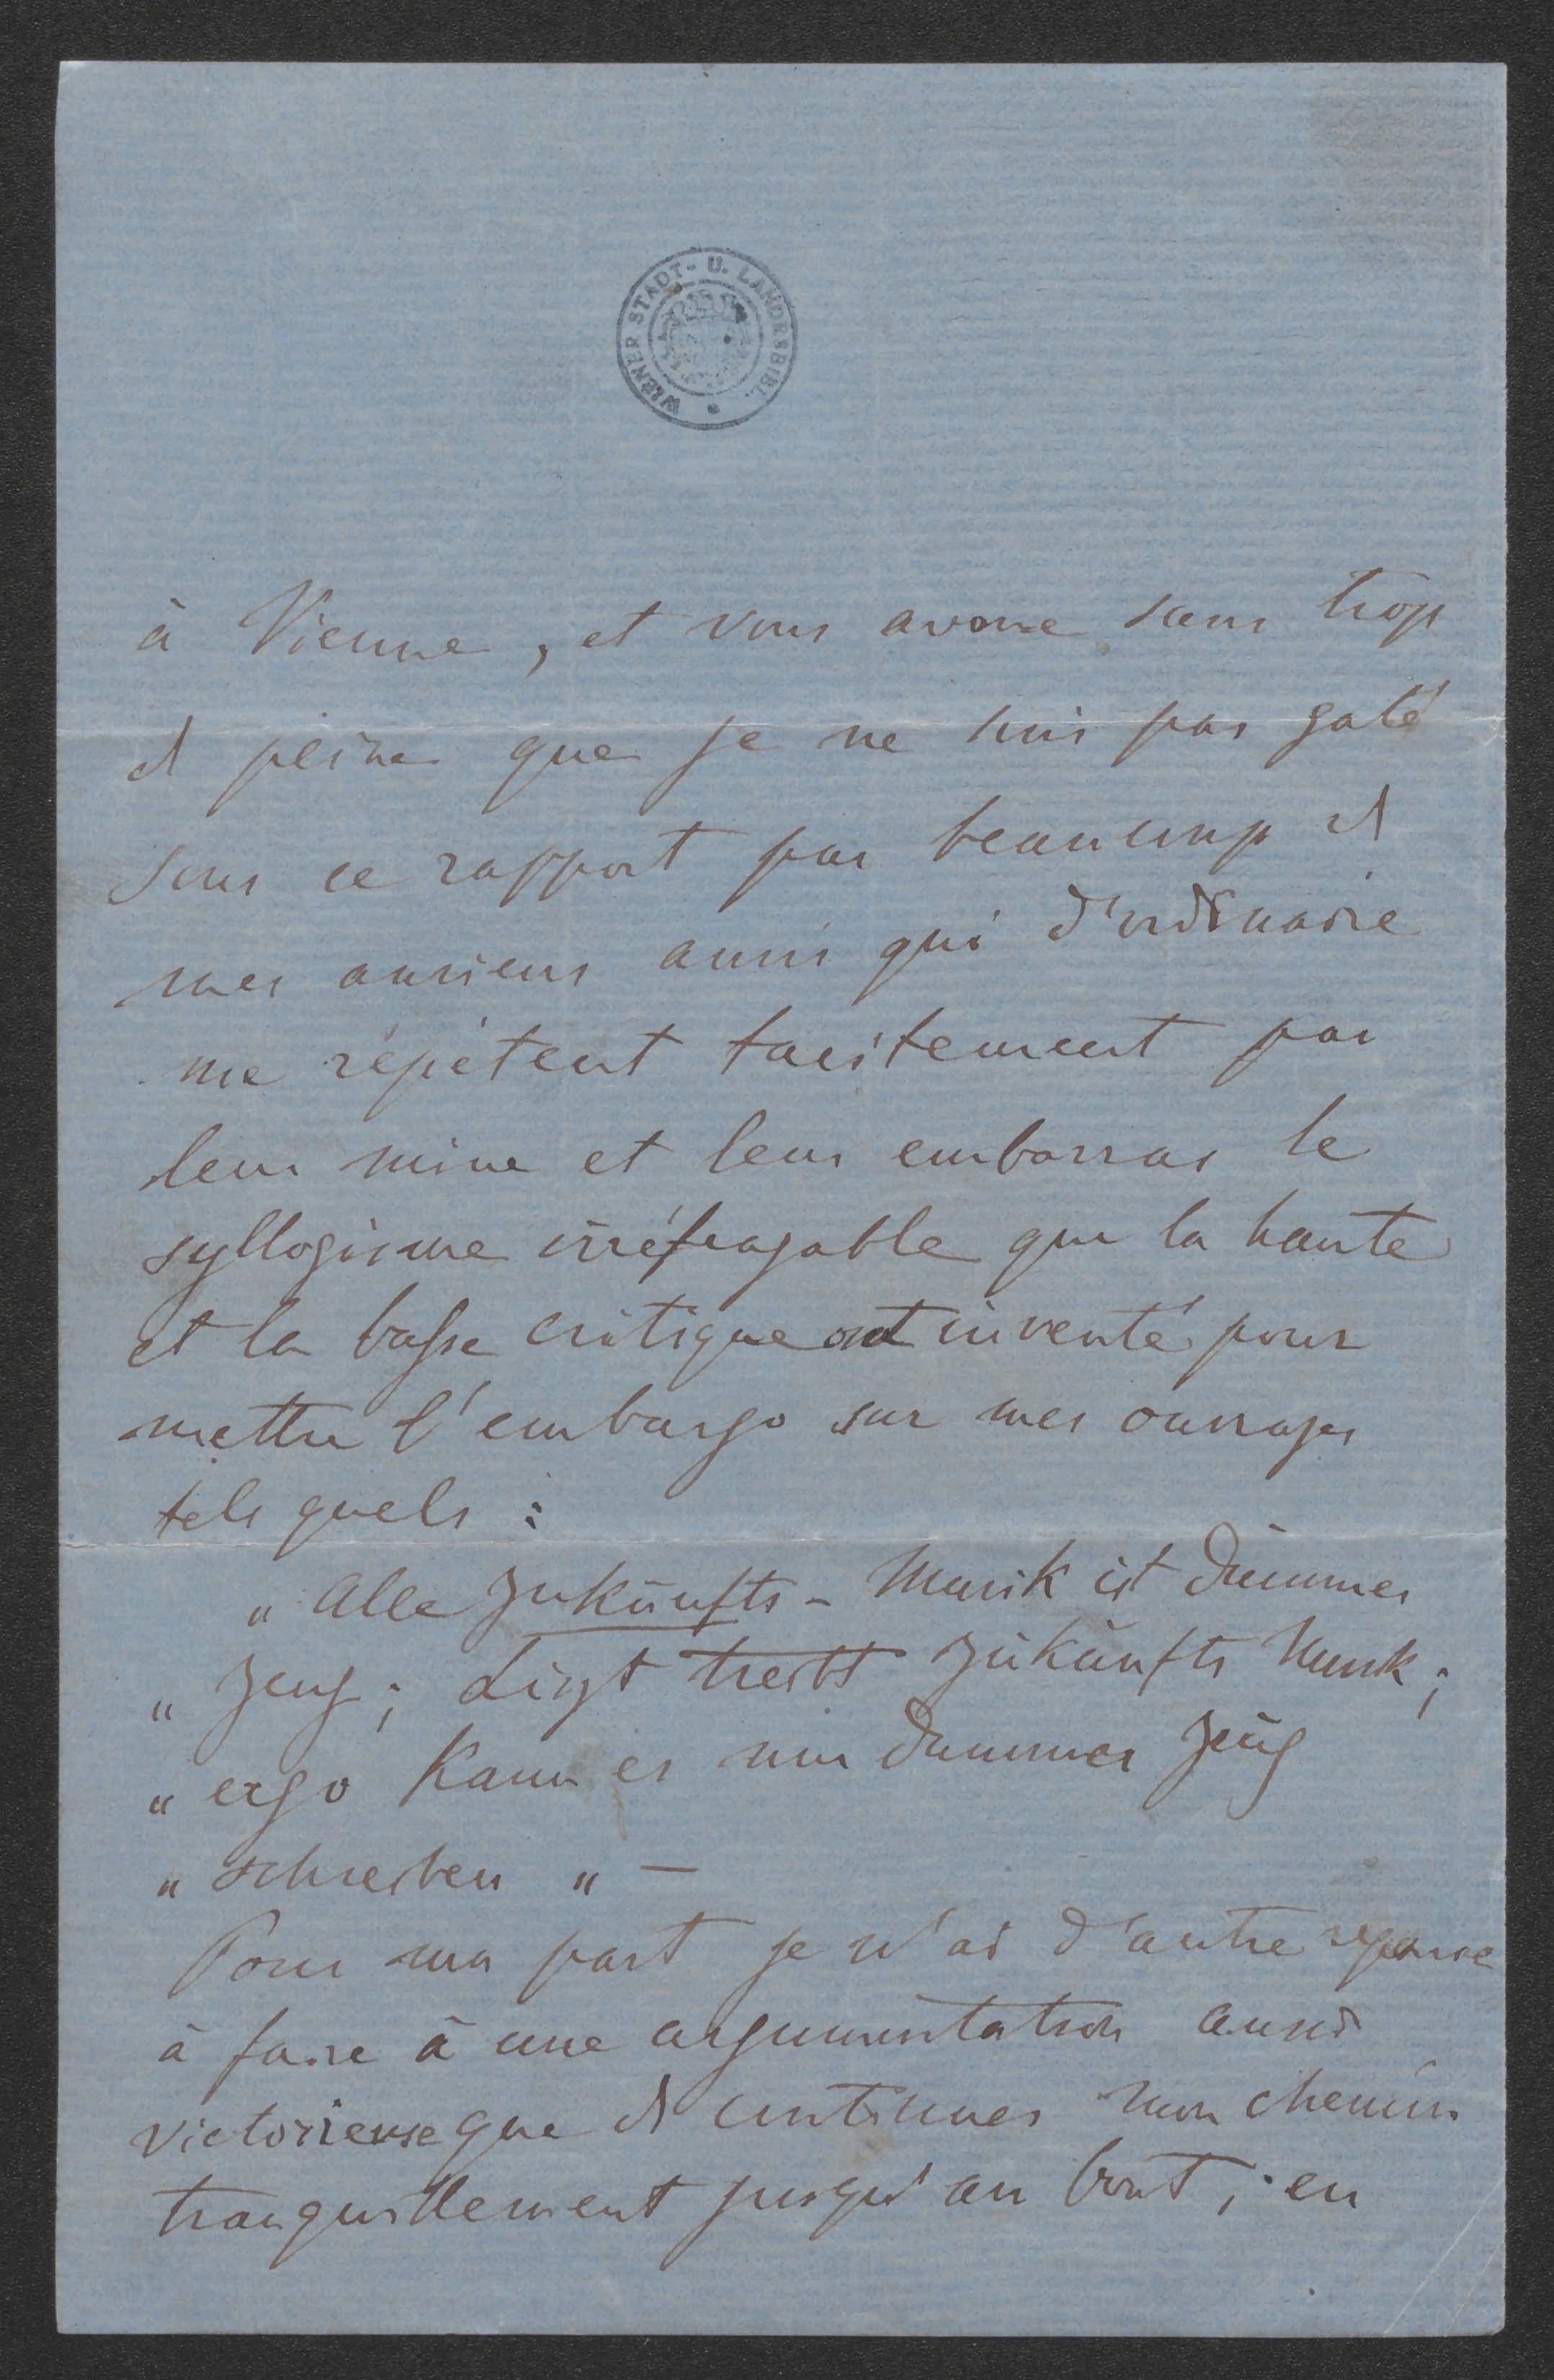 WIENER STADT- U. LANDESBIBL.
à Vienne, et vous avoue sans trop
de peine que je ne suis pas gaté
sous ce rapport par beaucoup de
mes anciens amis qui d'ordinaire
me répètent tacitement par
leur mine et leur embarras le
syllogisme irréfragable que la haute
et la basse critique ont inventé pour
mettre l'embargo sur mes ouvrages
tels quels :
„ Alle Zukünfts - Musik ist dummes
„ Zeug ; Liszt treibt Zukunfts Musik ;
„ ergo kann er nur dummes Zeug
„ schreiben „ —
Pour ma part je n'ai d'autre réponse
à faire à une argumentation aussi
victorieuse que de continuer mon chemin
tranquillement jusqu'au bout, en